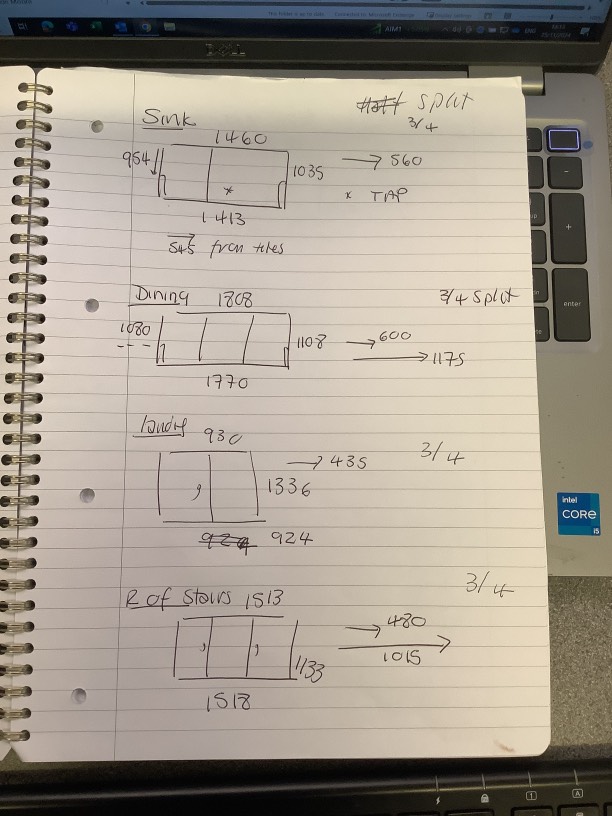 DELL
Sink
Split
3/4
1460
954
1035
→ 560
* TAP
1413
545 from tiles
Dining 1808
3/4 Split
1080
1108
→600
→1175
1770
930
→ 435
3/4
1336
924
R of Stairs 1513
3/4
→480
1133
1015
1518
enter
intel
CORE
i5